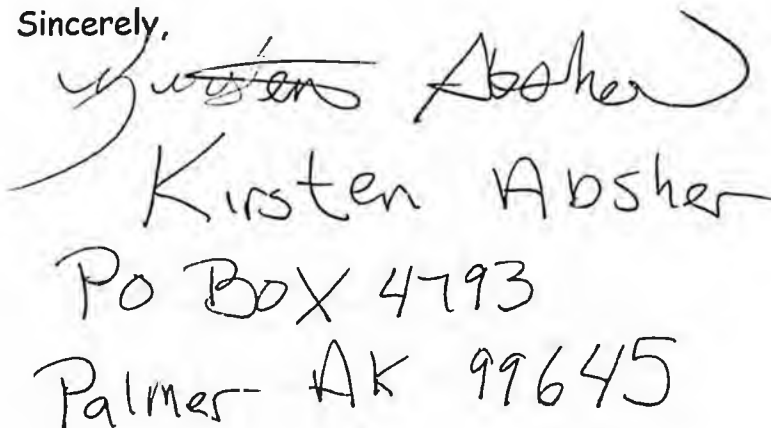 Sincerely,
Kirsten Absher
Kirsten Absher
PO BOX 4793
Palmer AK 99645